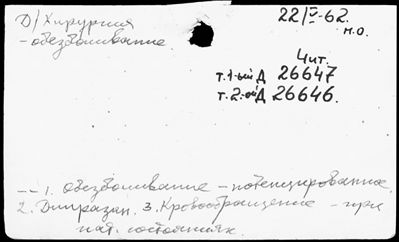 Д/Хирургия
- обезболивание
22/V-62.
м.о.
Чит.
т.1-ый Д 26647
т.2-ой Д 26646.
-- 1. Обезболивание - потенцированное.
2. Дипразин. 3. Кровообращение - при
пат. состояниях.